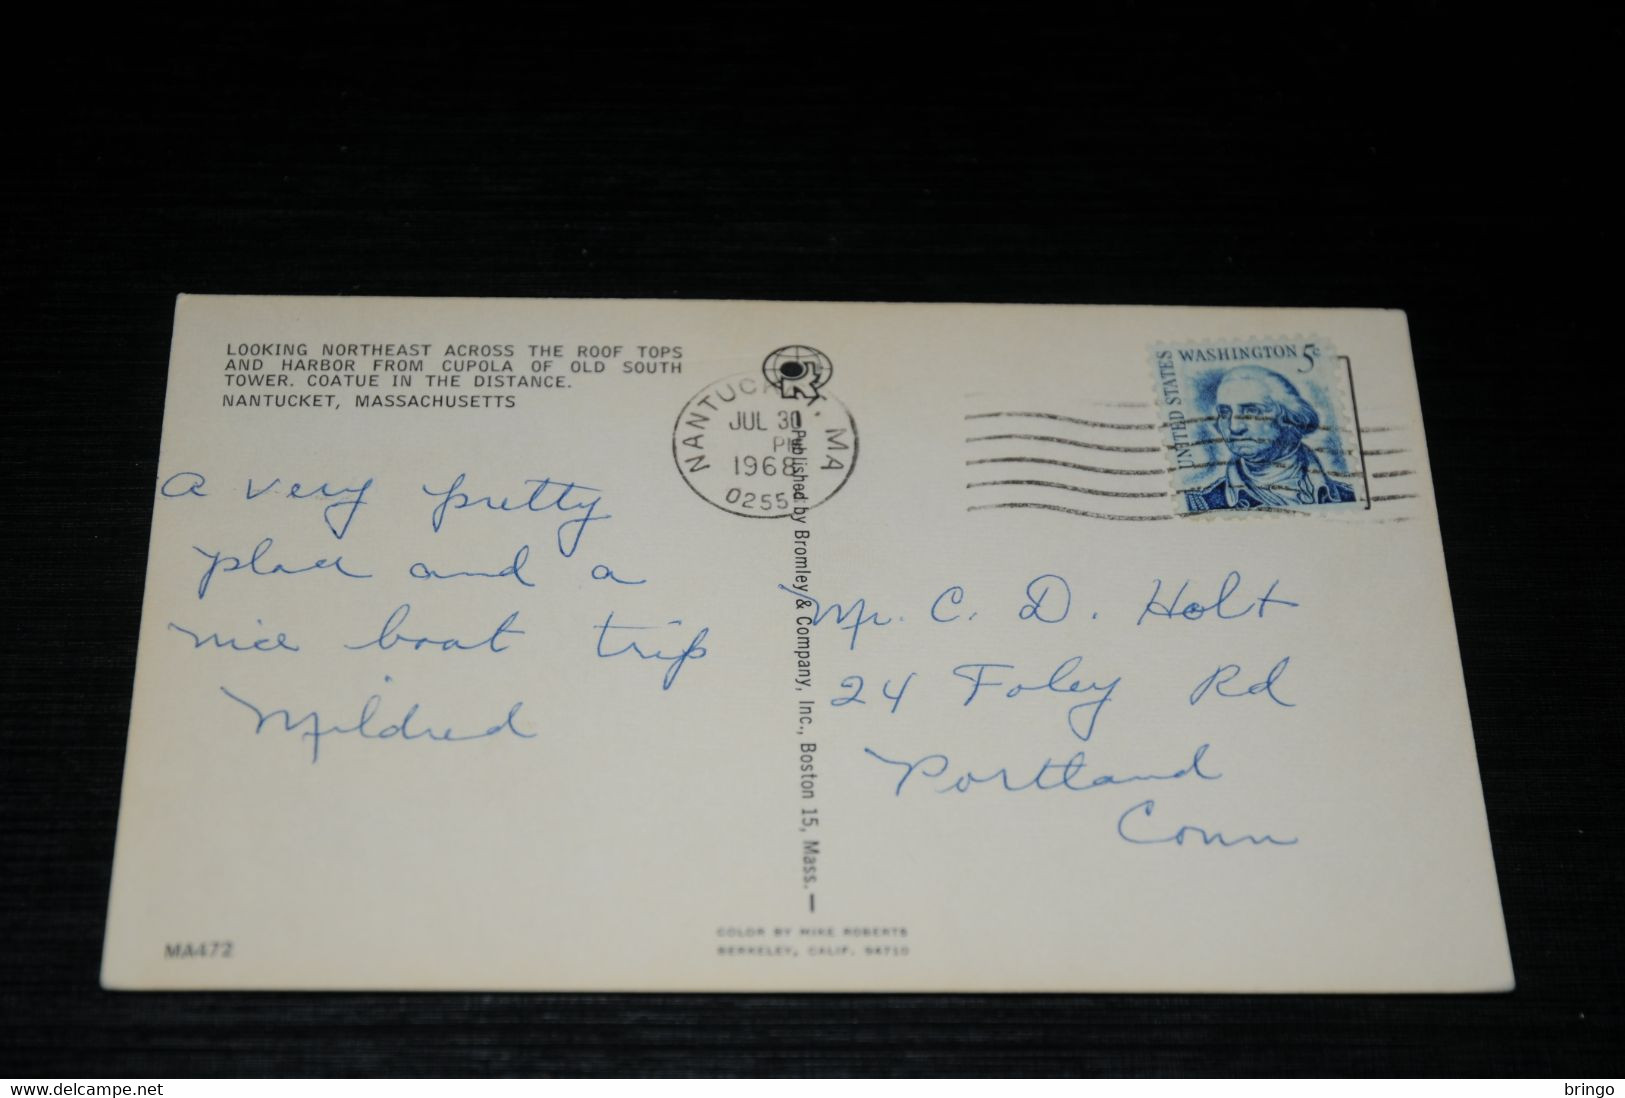 LOOKING NORTHEAST ACROSS THE ROOF TOPS
AND HARBOR FROM CUPOLA OF OLD SOUTH
TOWER. COATUE IN THE DISTANCE.
NANTUCKET, MASSACHUSETTS
A very pretty
place and a
nice boat trip
Mildred
MA472
NANTUCKET, MA
JUL 30
PM
1968
0255
Published by Bromley & Company, Inc., Boston 15, Mass.
COLOR BY MIKE ROBERTS
BERKELEY, CALIF. 94710
UNITED STATES
WASHINGTON 5c
Mr. C. D. Holt
24 Foley Rd
Portland
Conn
www.delcampe.net
bringo